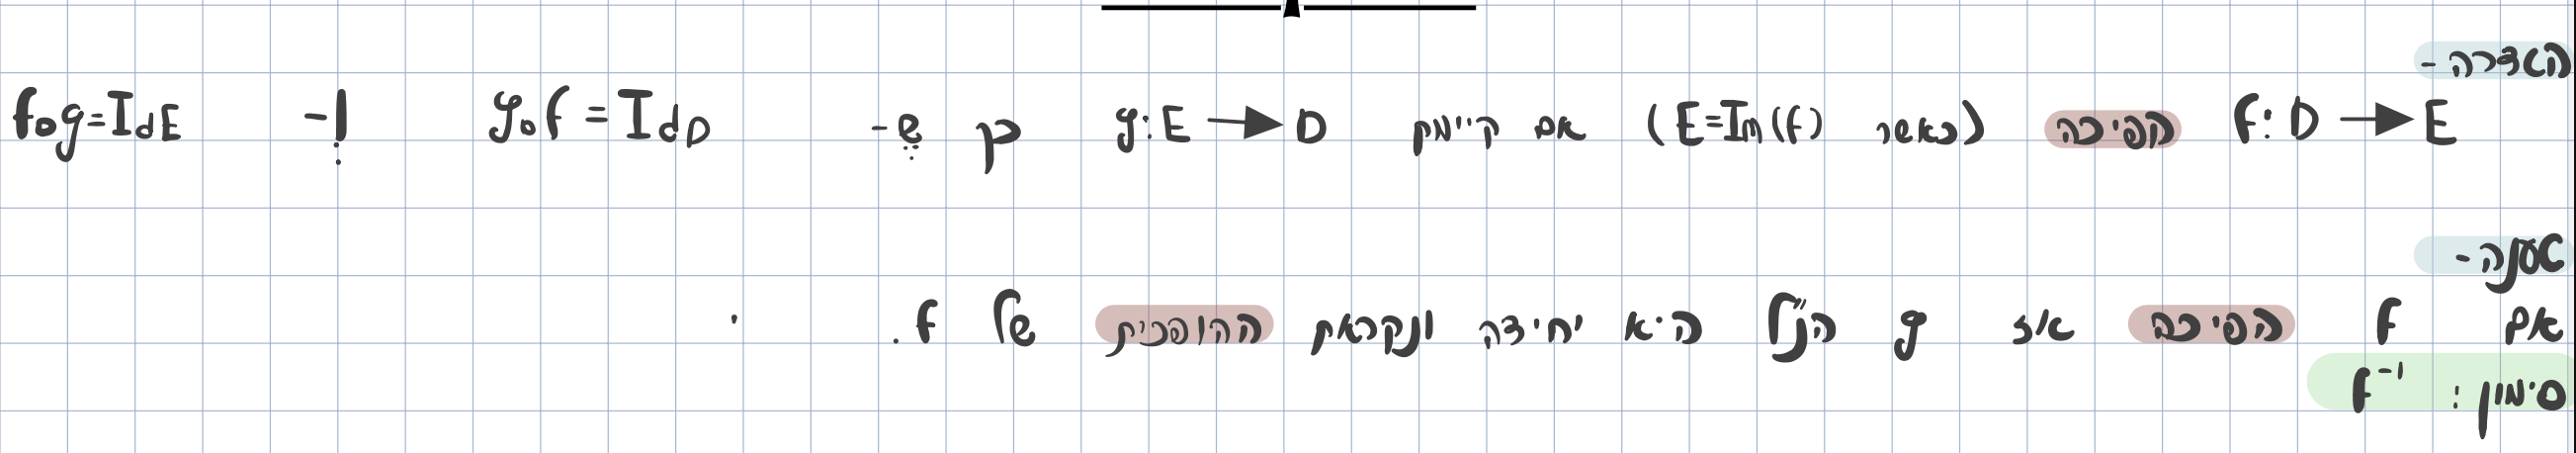 הגדרה -
f: D → E הפיכה (כאשר E=Im(f)) אם קיימת g: E → D כך ש- g∘f = Id_D ו- f∘g = Id_E
טענה -
אם f הפיכה אז g הנ"ל היא יחידה ונקראת ההופכית של f.
סימון: f⁻¹